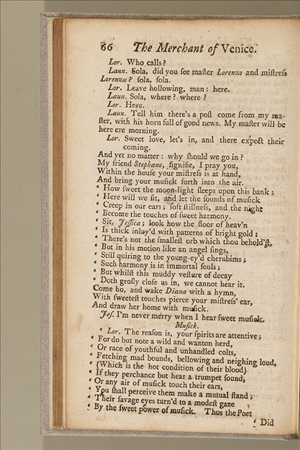 66 The Merchant of Venice.
Lor. Who calls?
Laun. Sola, did you see master Lorenzo and mistress
Lorenzo? sola, sola.
Lor. Leave hollowing, man: here.
Laun. Sola, where? where?
Lor. Here.
Laun. Tell him there's a post come from my ma-
ster, with his horn full of good news. My master will be
here ere morning.
Lor. Sweet love, let's in, and there expect their
coming.
And yet no matter: why should we go in?
My friend Stephano, signifie, I pray you,
Within the house your mistress is at hand,
And bring your musick forth into the air.
‘ How sweet the moon-light sleeps upon this bank;
‘ Here will we sit, and let the sounds of musick
‘ Creep in our ears; soft stillness, and the night
‘ Become the touches of sweet harmony.
‘ Sit, Jessica; look how the floor of heav'n
‘ Is thick inlay'd with patterns of bright gold;
‘ There's not the smallest orb which thou behold'st,
‘ But in his motion like an angel sings,
‘ Still quiring to the young-ey'd cherubims;
‘ Such harmony is in immortal souls;
‘ But whilst this muddy vesture of decay
‘ Doth grosly close us in, we cannot hear it.
Come ho, and wake Diana with a hymn,
With sweetest touches pierce your mistress' ear,
And draw her home with musick.
Jes. I'm never merry when I hear sweet musick.
Musick.
‘ Lor. The reason is, your spirits are attentive;
‘ For do but note a wild and wanton herd,
‘ Or race of youthful and unhandled colts,
‘ Fetching mad bounds, bellowing and neighing loud,
‘ (Which is the hot condition of their blood)
‘ If they perchance but hear a trumpet sound,
‘ Or any air of musick touch their ears,
‘ You shall perceive them make a mutual stand;
‘ Their savage eyes turn'd to a modest gaze
‘ By the sweet power of musick. Thus the Poet
‘ Did